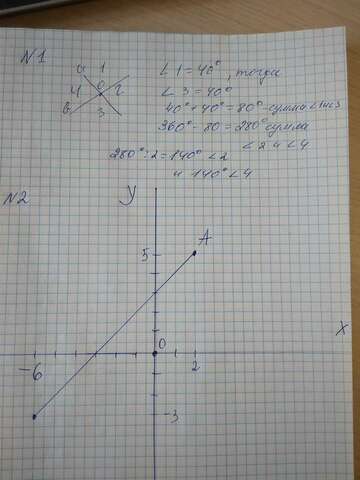 N1
a 1
4 0 2
в 3
∠1 = 40°, тогда
∠3 = 40°
40° + 40° = 80° - сумма ∠1и∠3
360° - 80 = 280° сумма
∠2 и ∠4
280° : 2 = 140° ∠2
и 140° ∠4
N2
y
5 A
x
0
-6 2
-3